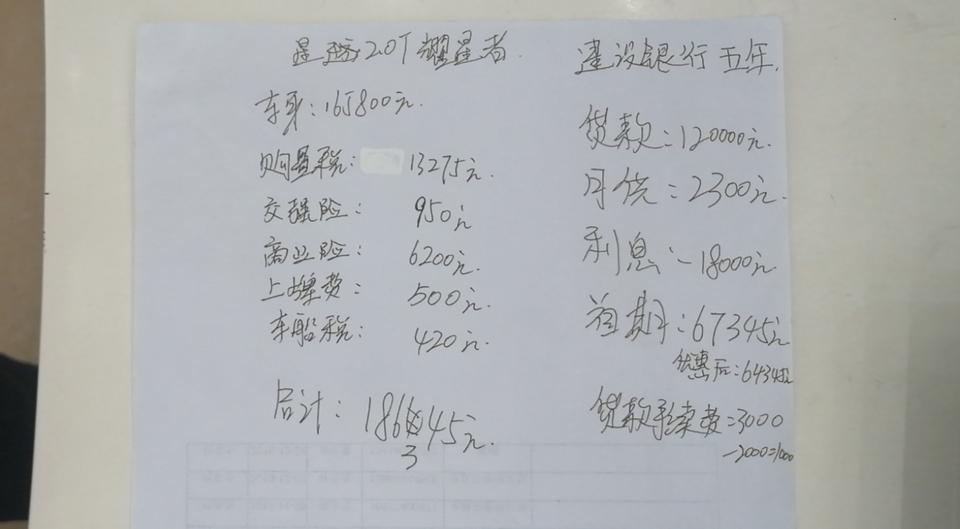 星越2.0T耀星者
车身:165800元.
购置税: 13275元.
交强险: 950元
商业险: 6200元.
上牌费: 500元.
车船税: 420元.
合计: 186645元.
3
建设银行 五年.
贷款:120000元.
月供:2300元.
利息:-18000元
首期:67345元
优惠后:64345元
贷款手续费=3000
-2000=1000